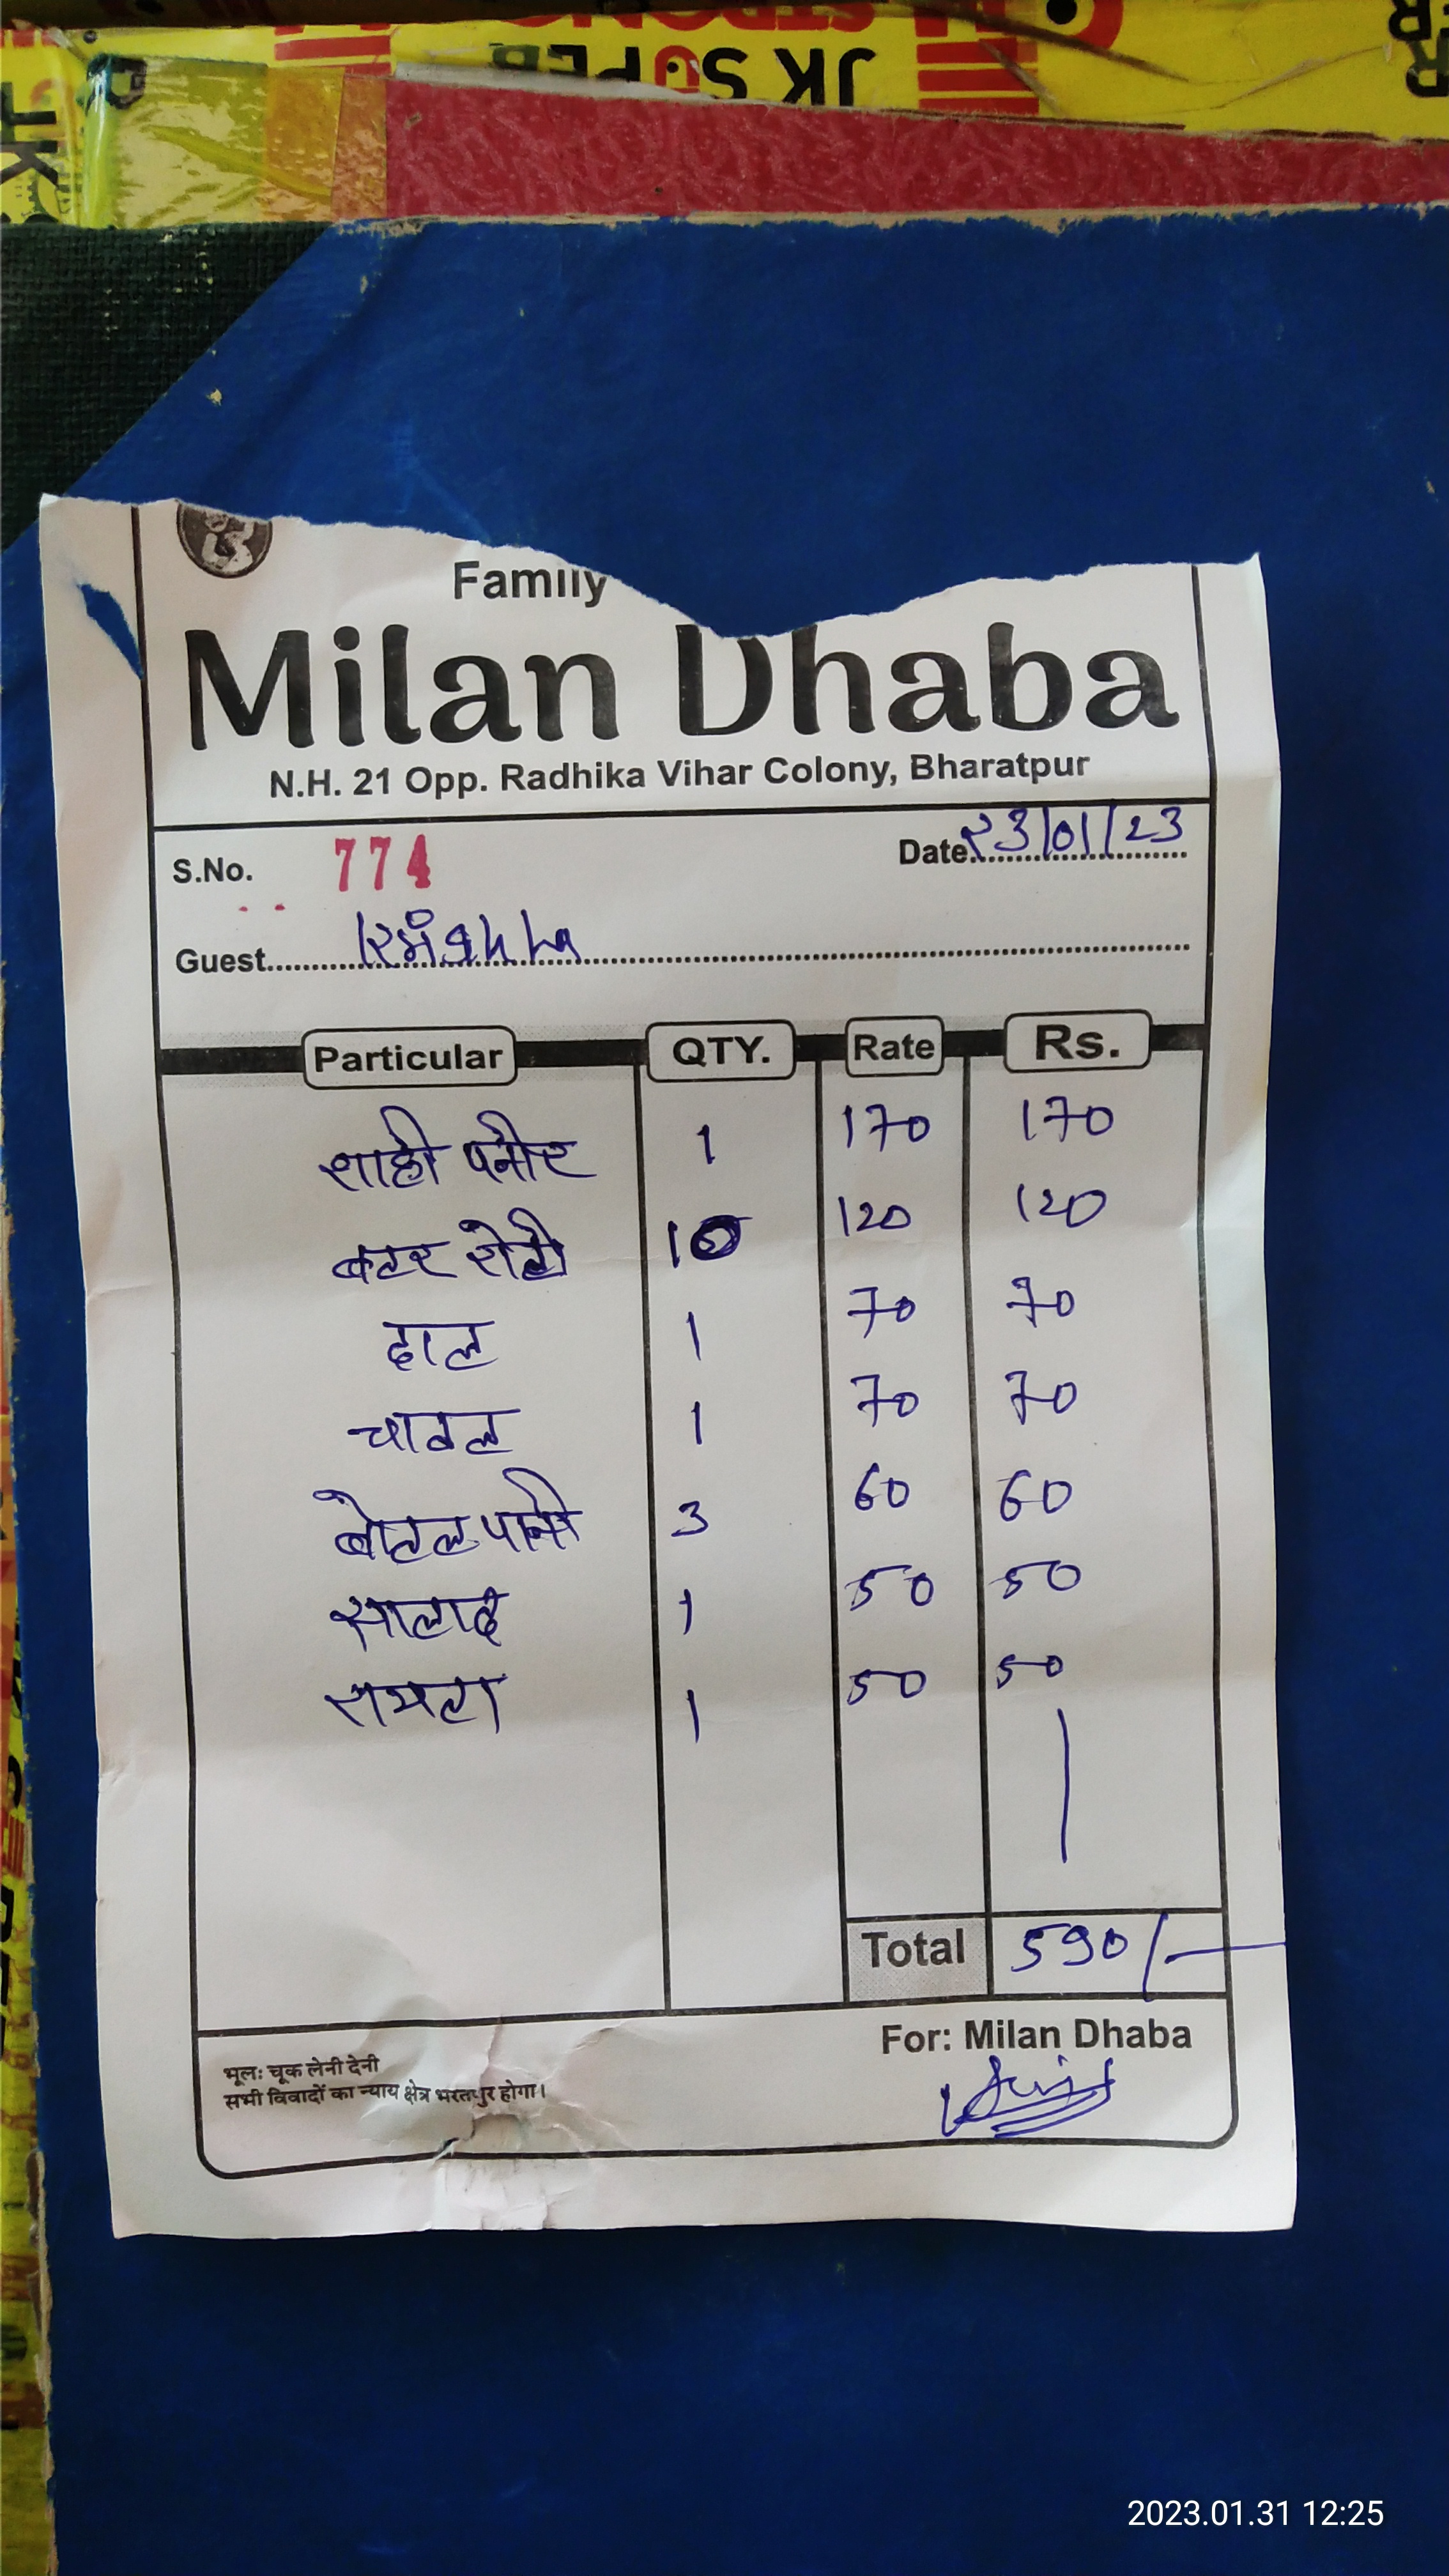 JK SUPER
STRONG
Family
Milan Dhaba
N.H. 21 Opp. Radhika Vihar Colony, Bharatpur
S.No. 774 Date २3/01/23
Guest Krishna
Particular QTY. Rate Rs.
शाही पनीर 1 170 170
बटर रोटी 10 120 120
दाल 1 70 70
चावल 1 70 70
बोतल पानी 3 60 60
सालाद 1 50 50
रायता 1 50 50
Total 590/-
For: Milan Dhaba
भूलः चूक लेनी देनी
सभी विवादों का न्याय क्षेत्र भरतपुर होगा।
2023.01.31 12:25